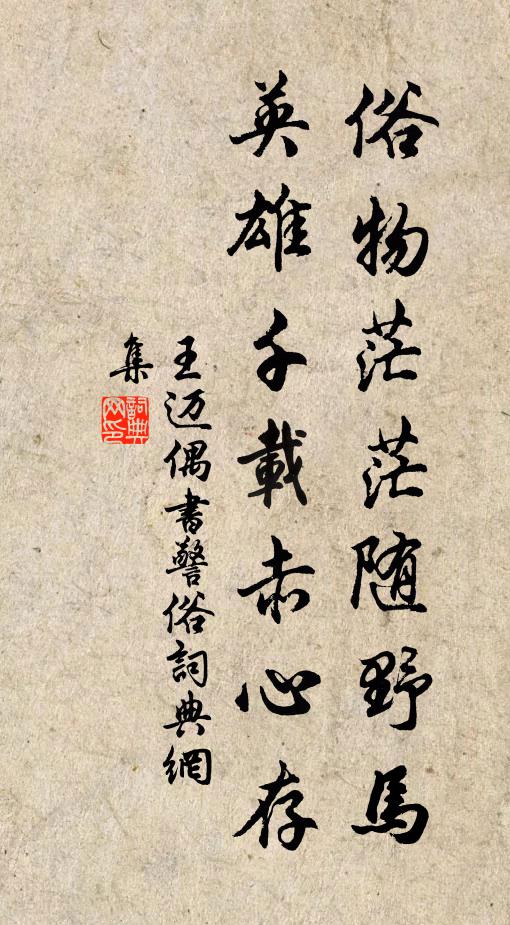 俗物茫茫随野馬
英雄千載赤心存
王迈偶書警俗詞典網
集
詞典网印